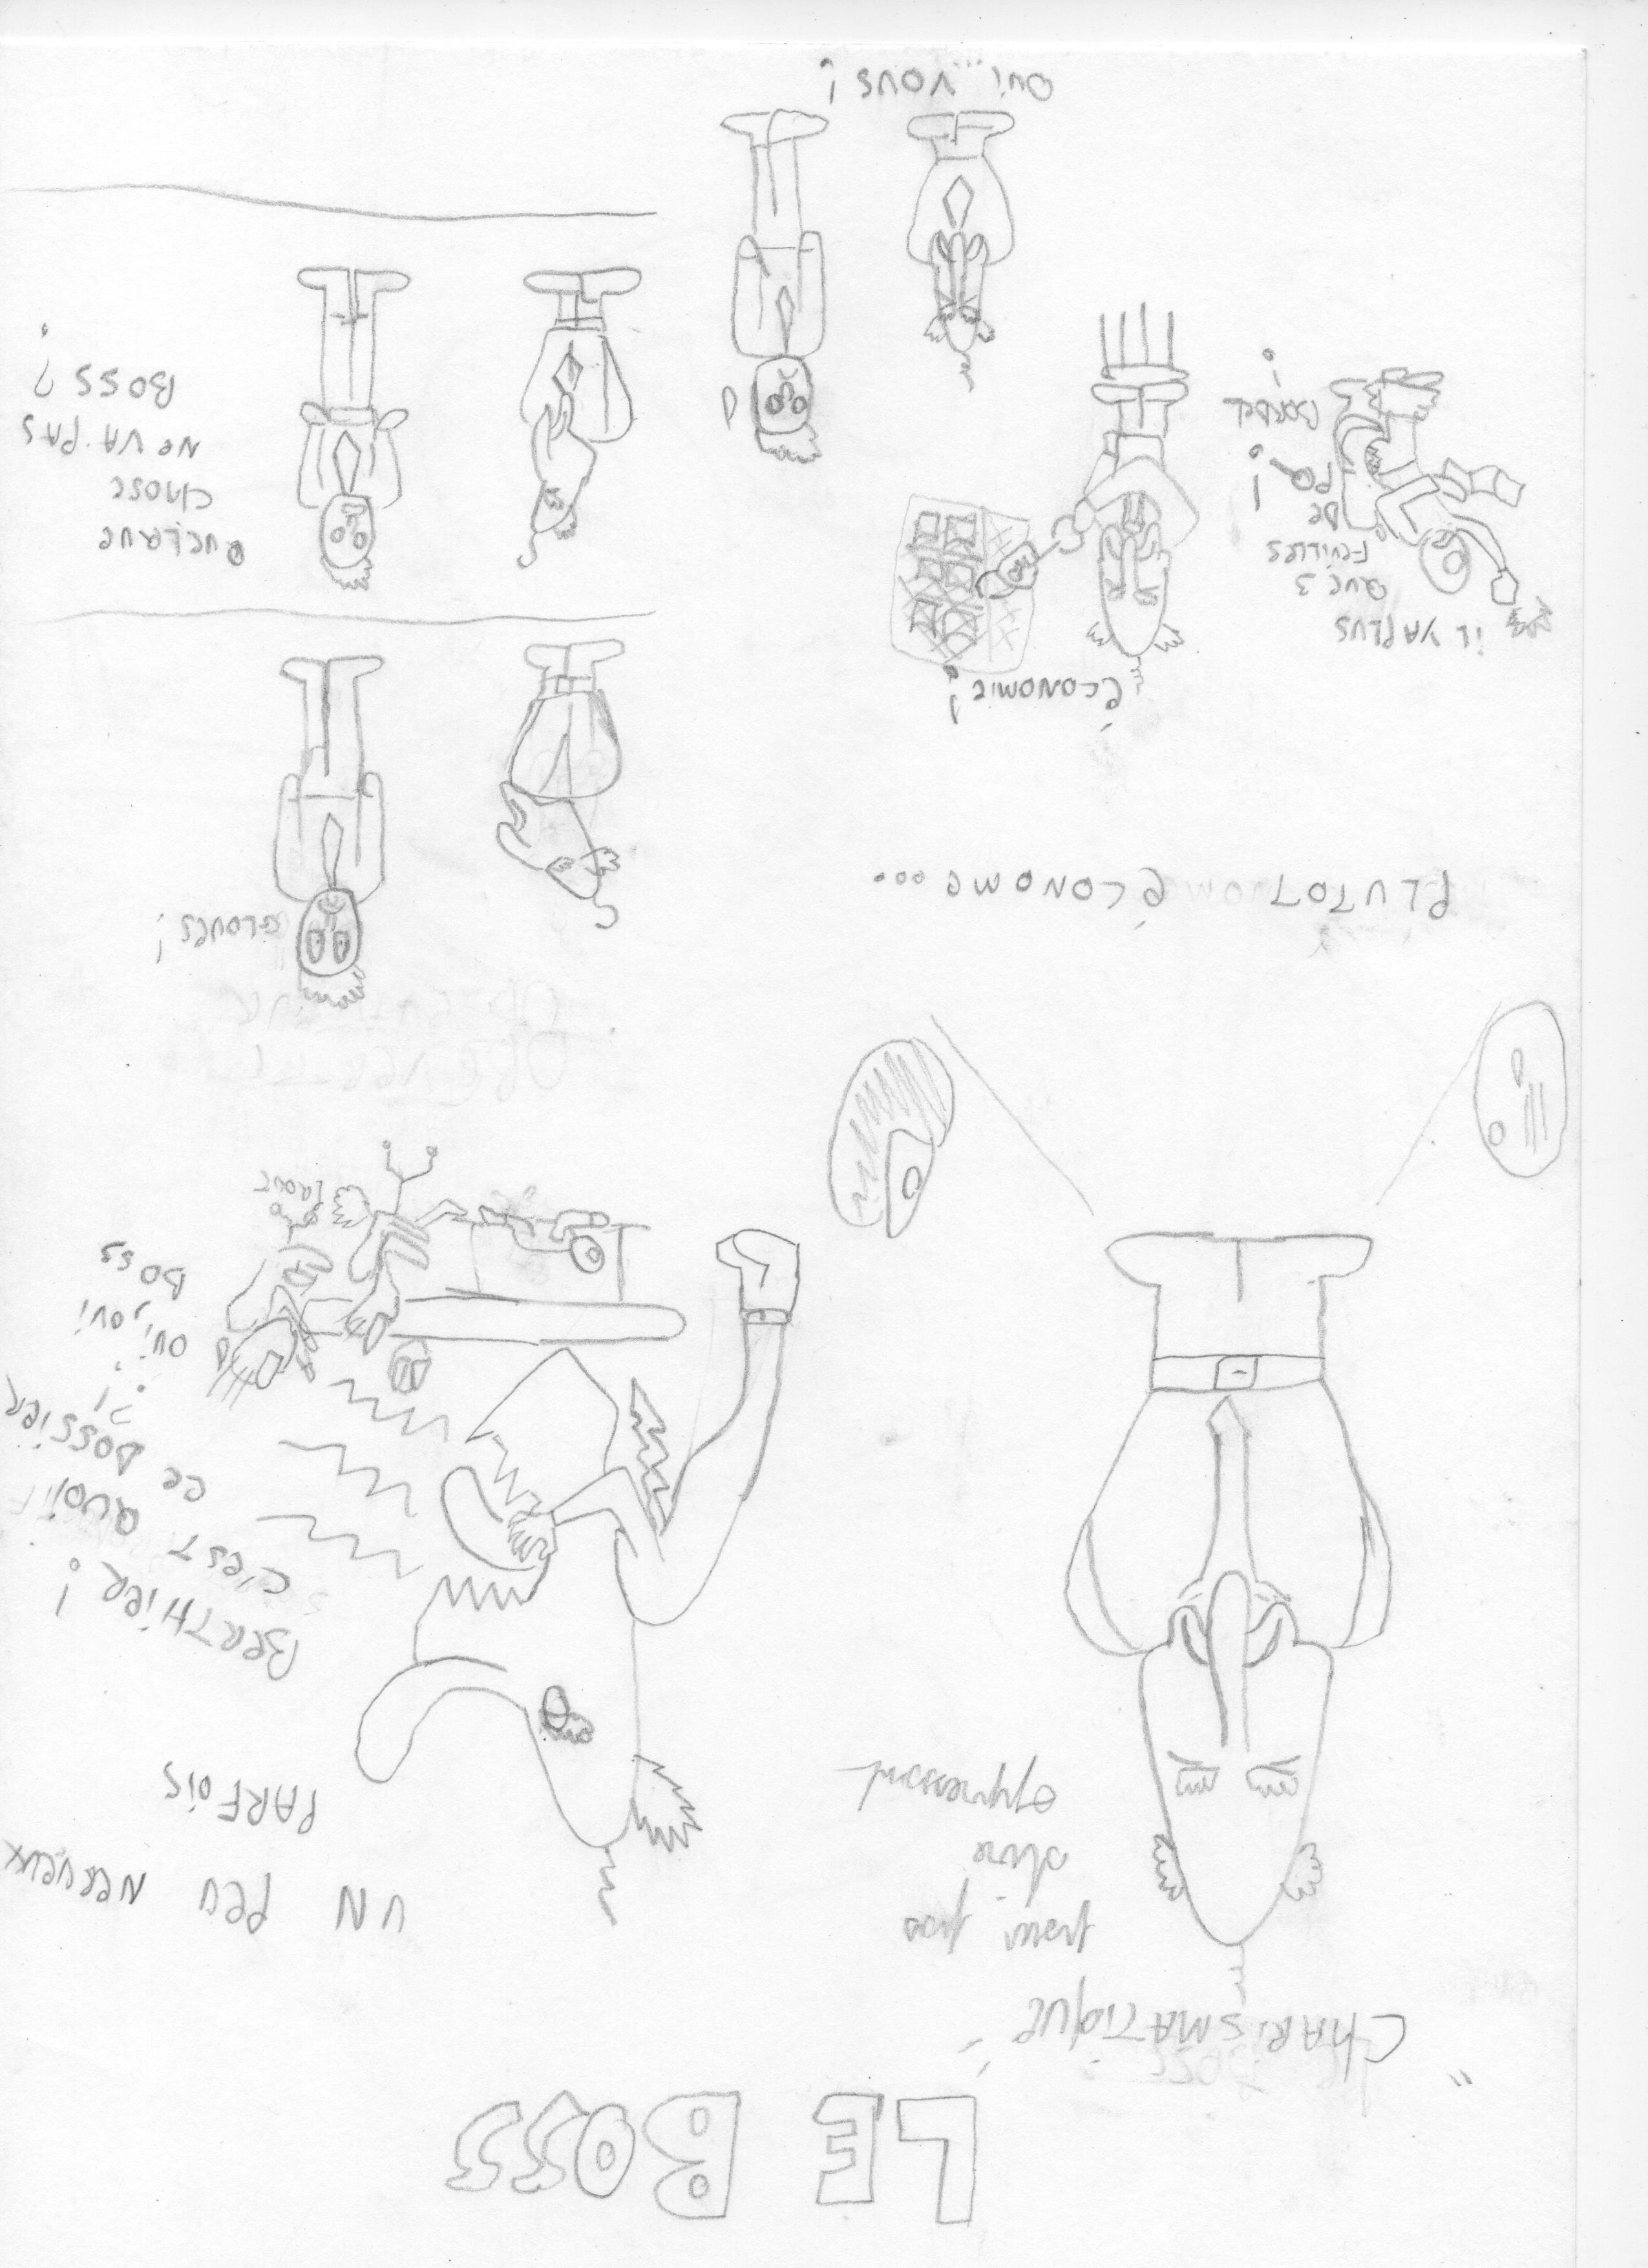 LE BOSS
"CHARISMATIQUE"
pour pas
dire
oppressant
UN PEU NERVEUX
PARFOIS
BERTHIER !
C'EST QUOI
CE DOSSIER
?!
OUI, OUI
BOSS
PLUTOT éCONOME...
éCONOMIE !
IL YA PLUS
QUE 3
FEUILLES
DE
PQ !
GLOUPS !
QUELQUE
CHOSE
NE VA PAS
BOSS ?
OUI... VOUS !